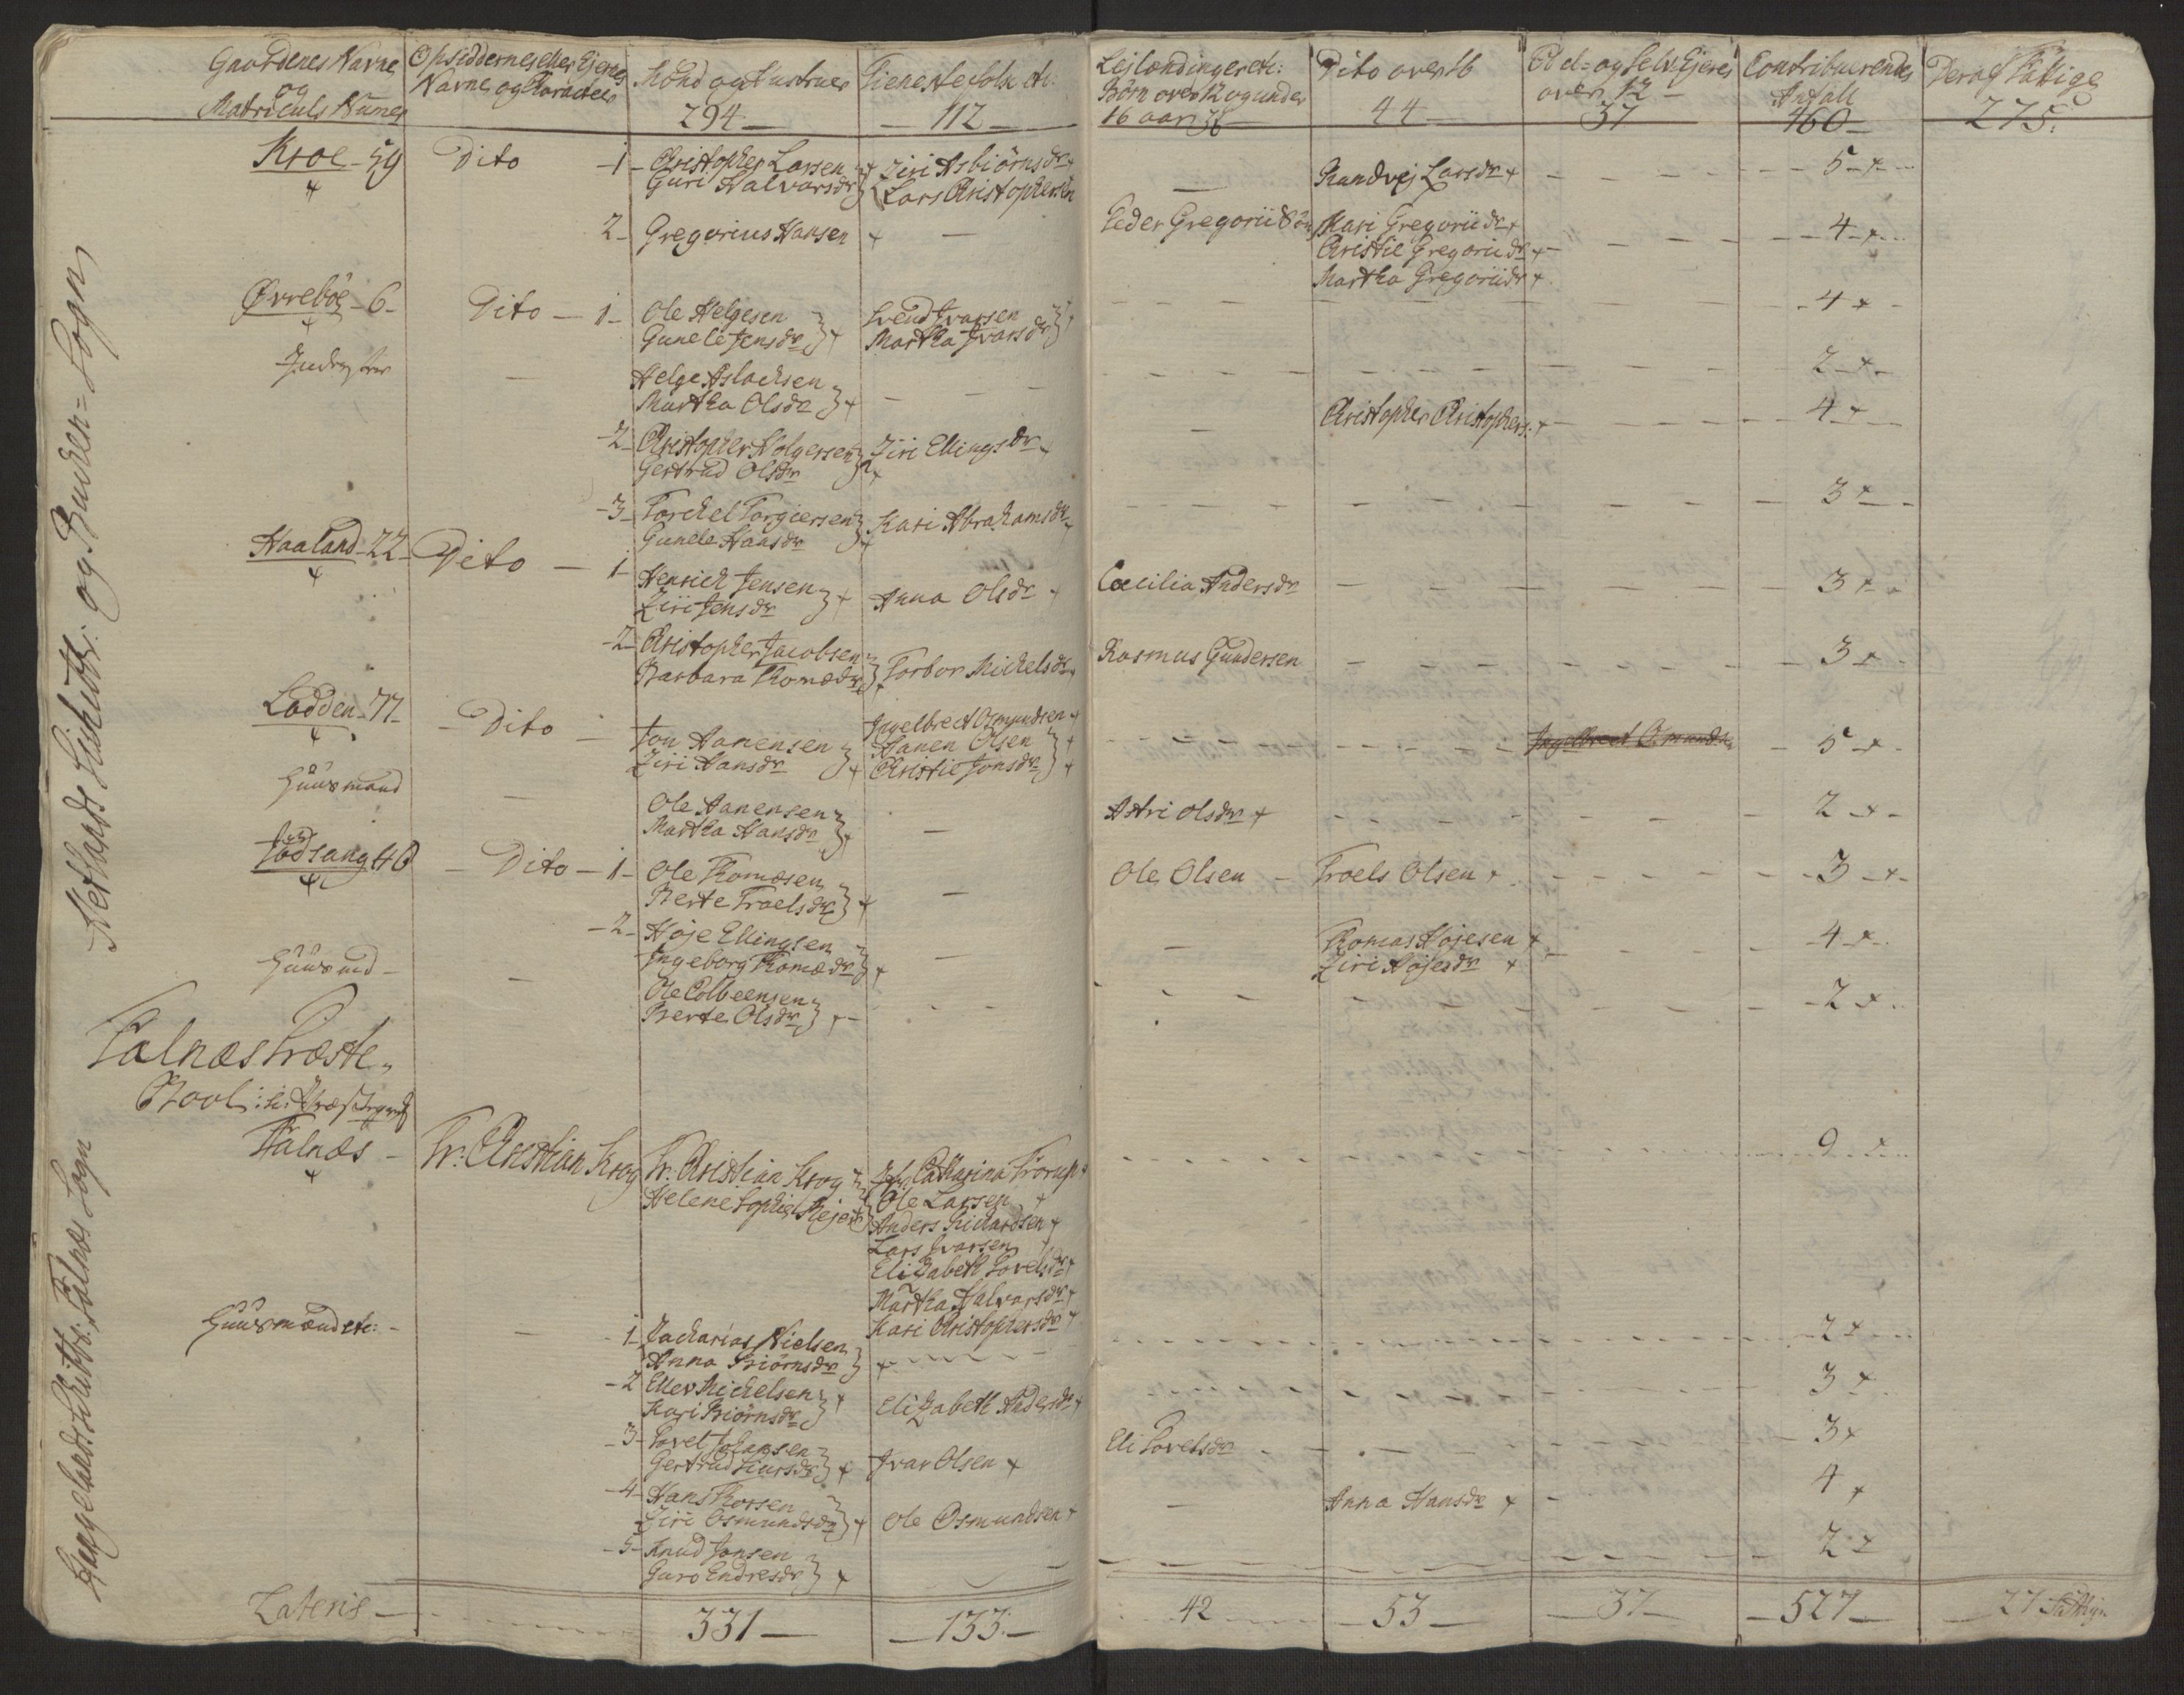 Gaardenes Navne
og
Matriculs Numer
Opsiddernes eller Ejernes
Navne og Characteer
Mænd og Hustruer
294
Tienestefolk etc:
112
Lejlændinger etc:
Børn over 12 og under
16 aar 36
Dito over 16
44
Odel- og Selv Ejeres
over 12
37
Contribuerendes
Antall
460
Deraf Fattige
275.
Netlands Skibstt: og Bucken=Sogn
Kroe - 59
Dito
1 - Christopher Larsen
Guri Halvarsdr
Ziri Asbiörnsdr
Lars Christophersen
Randvej Larsdr
5
2 - Gregorius Hansen
Peder Gregorii Sön
Kari Gregorii dr
Christie Gregorii dr
Martha Gregorii dr
4
Övreböe - 6 -
Dito - 1 -
Ole Helgesen
Gunele Jensdr
Svend Ivarsen
Martha Ivarsdr
4
Inderster
Helge Aslacksen
Martha Olsdr
2
2 - Christopher Holgersen
Gertrud Olsdr
Ziri Ellingsdr
Christopher Christophers:
4
3 - Torckel Torgiersen
Gunele Hansdr
Kari Abrahamsdr
3
Haaland - 22 -
Dito - 1 -
Henrich Jensen
Ziri Jensdr
Anna Olsdr
Cæcilia Andersdr
3
2 - Christopher Jacobsen
Barbara Thomædr
Torbor Mickelsdr
Rasmus Gundersen
3
Lodden - 77 -
Dito
Jon Aanensen
Ziri Hansdr
Ingelbrect Osmundsen
Hanen Olsen
Christie Jonsdr
Ingelbrect Osmunds:
5
Huusmand
Ole Aanensen
Martha Hansdr
Astri Olsdr
2
Lödsang 46
Dito - 1 -
Ole Thomæsen
Berte Troelsdr
Ole Olsen
Troels Olsen
3
2 - Höje Ellingsen
Ingeborg Thomædr
Thomas Höjesen
Ziri Höjesdr
4
Huusmd
Ole Colbeensen
Berte Olsdr
2
Falnæs Præste-
Bool: h: Præstegrd
Falnæs Sogn
Falnæs -
Hr: Christian Krog
Hr: Christian Krog
Helene Sophie Mejer
Jfr: Catharina Frörup
Ole Larsen
Anders Rickardsen
Lars Ivarsen
Elizabeth Povelsdr
Martha Halvarsdr
Kari Christophersdr
9
Huusmænd etc: -
1 - Zacharias Nielsen
Anna Biörnsdr
2
2 Ellev Mickelsen
Kari Biörnsdr
Elizabeth Andersdr
3
3 - Povel Johansen
Gertrud Siursdr
Ivar Olsen
Eli Povelsdr
3
4 - Hans Thorsen
Ziri Osmundsdr
Ole Osmundsen
Anna Hansdr
4
5 - Knud Jonsen
Guro Endresdr
2
Lateris -
331
133
42
53
37
527
27 Fattige